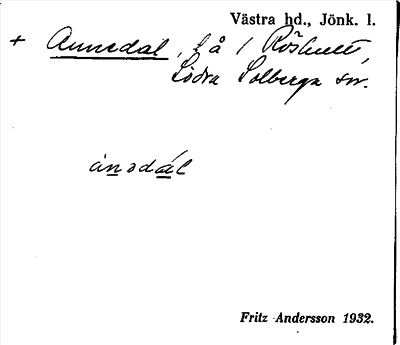 Västra hd., Jönk. l.
+ Annedal, l å 1 Röshult,
Södra Solberga sn.
ánədál
Fritz Andersson 1932.